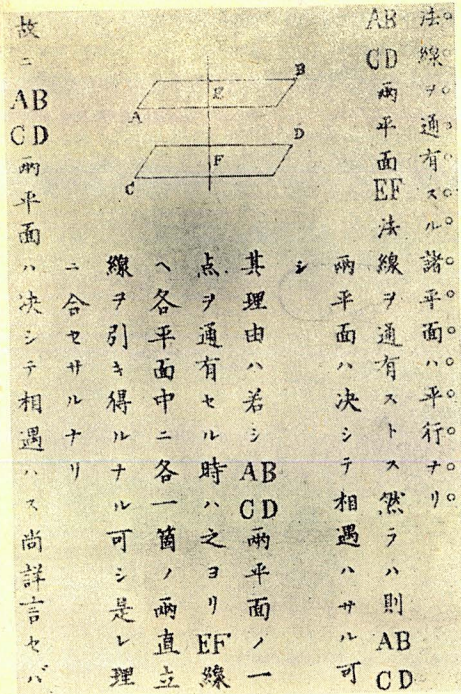 法線ヲ通有スル諸平面ハ平行ナリ
AB CD 兩平面 EF 法線ヲ通有ストス然ラハ則 AB CD
兩平面ハ决シテ相遇ハサル可
シ
其理由ハ若シ AB CD 兩平面ノ一
点ヲ通有セル時ハ之ヨリ EF 線
ヘ各平面中ニ各一箇ノ兩直立
線ヲ引キ得ルナル可シ是レ理
ニ合セサルナリ
故ニ AB CD 兩平面ハ决シテ相遇ハス尚詳言セバ
B
E
A
D
F
C